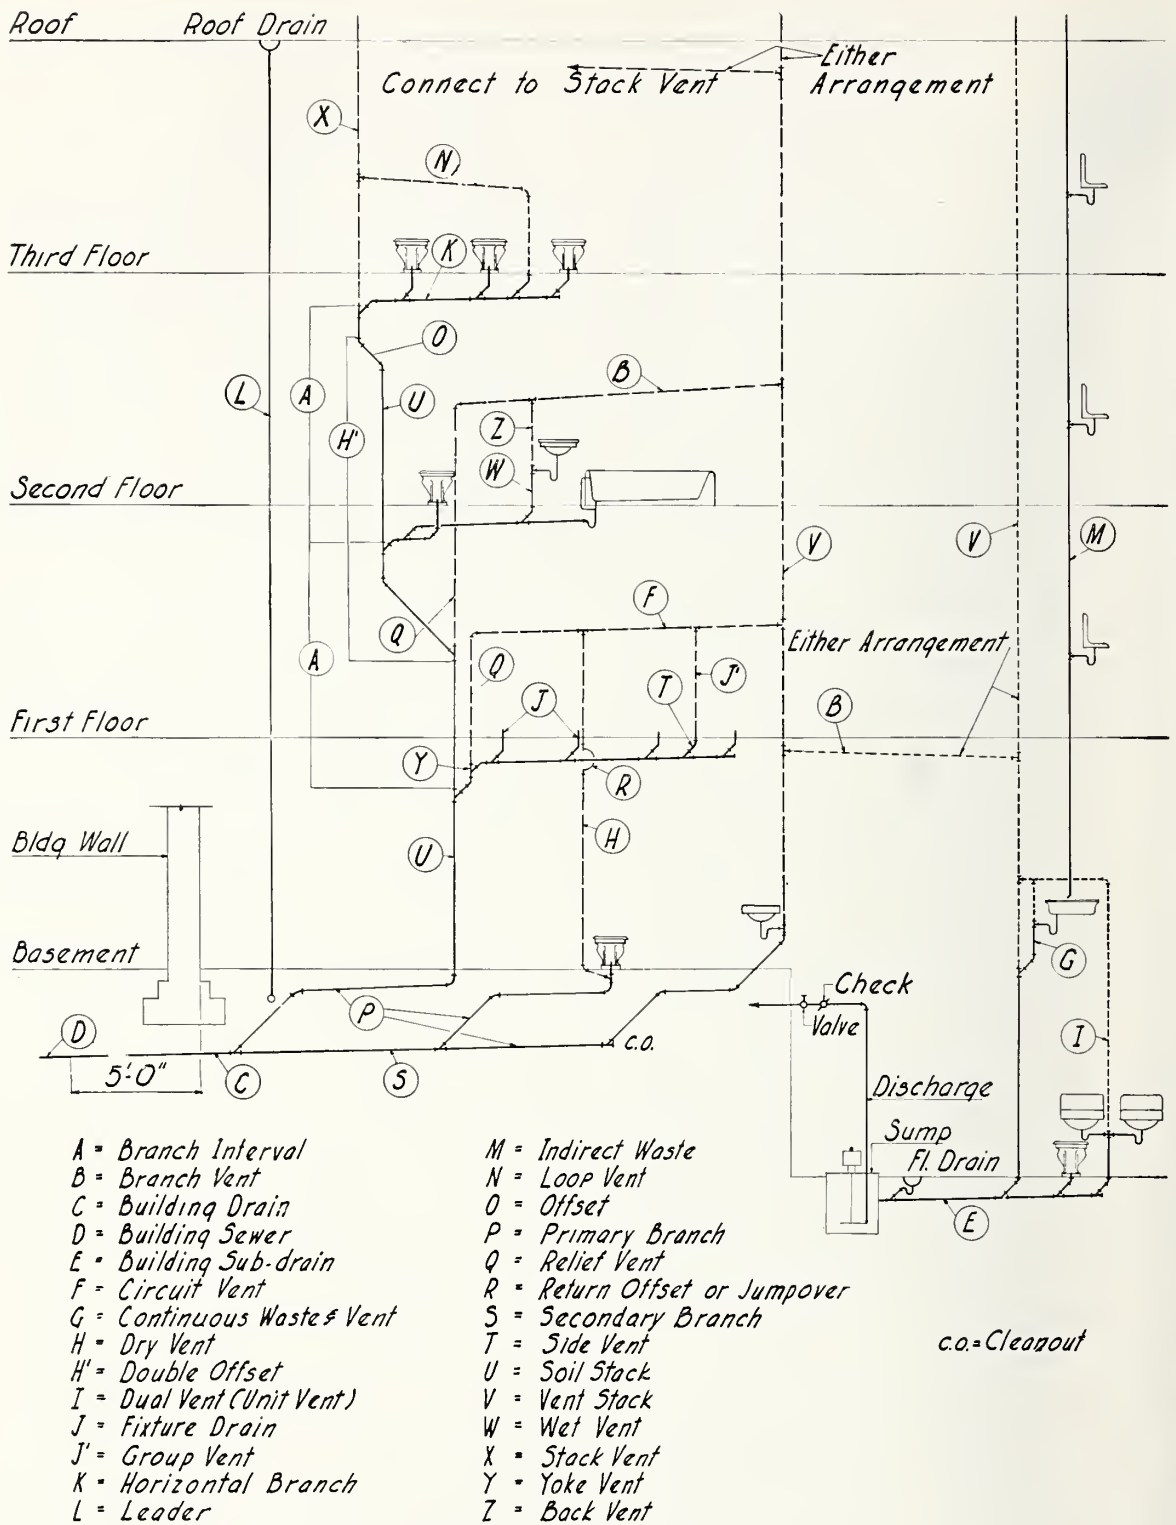 Roof
Roof Drain
Either
Arrangement
Connect to Stack Vent
X
N
Third Floor
K
O
B
L
A
U
Z
H'
W
Second Floor
V
V
M
F
Q
Either Arrangement
A
Q
J'
J
T
B
First Floor
Y
R
H
Bldg Wall
U
Basement
G
Check
P
Valve
D
C.O.
I
5'-0"
C
S
Discharge
Sump
Fl. Drain
E
A = Branch Interval
B = Branch Vent
C = Building Drain
D = Building Sewer
E = Building Sub-drain
F = Circuit Vent
G = Continuous Waste & Vent
H = Dry Vent
H' = Double Offset
I = Dual Vent (Unit Vent)
J = Fixture Drain
J' = Group Vent
K = Horizontal Branch
L = Leader
M = Indirect Waste
N = Loop Vent
O = Offset
P = Primary Branch
Q = Relief Vent
R = Return Offset or Jumpover
S = Secondary Branch
T = Side Vent
U = Soil Stack
V = Vent Stack
W = Wet Vent
X = Stack Vent
Y = Yoke Vent
Z = Back Vent
c.o. = Cleanout